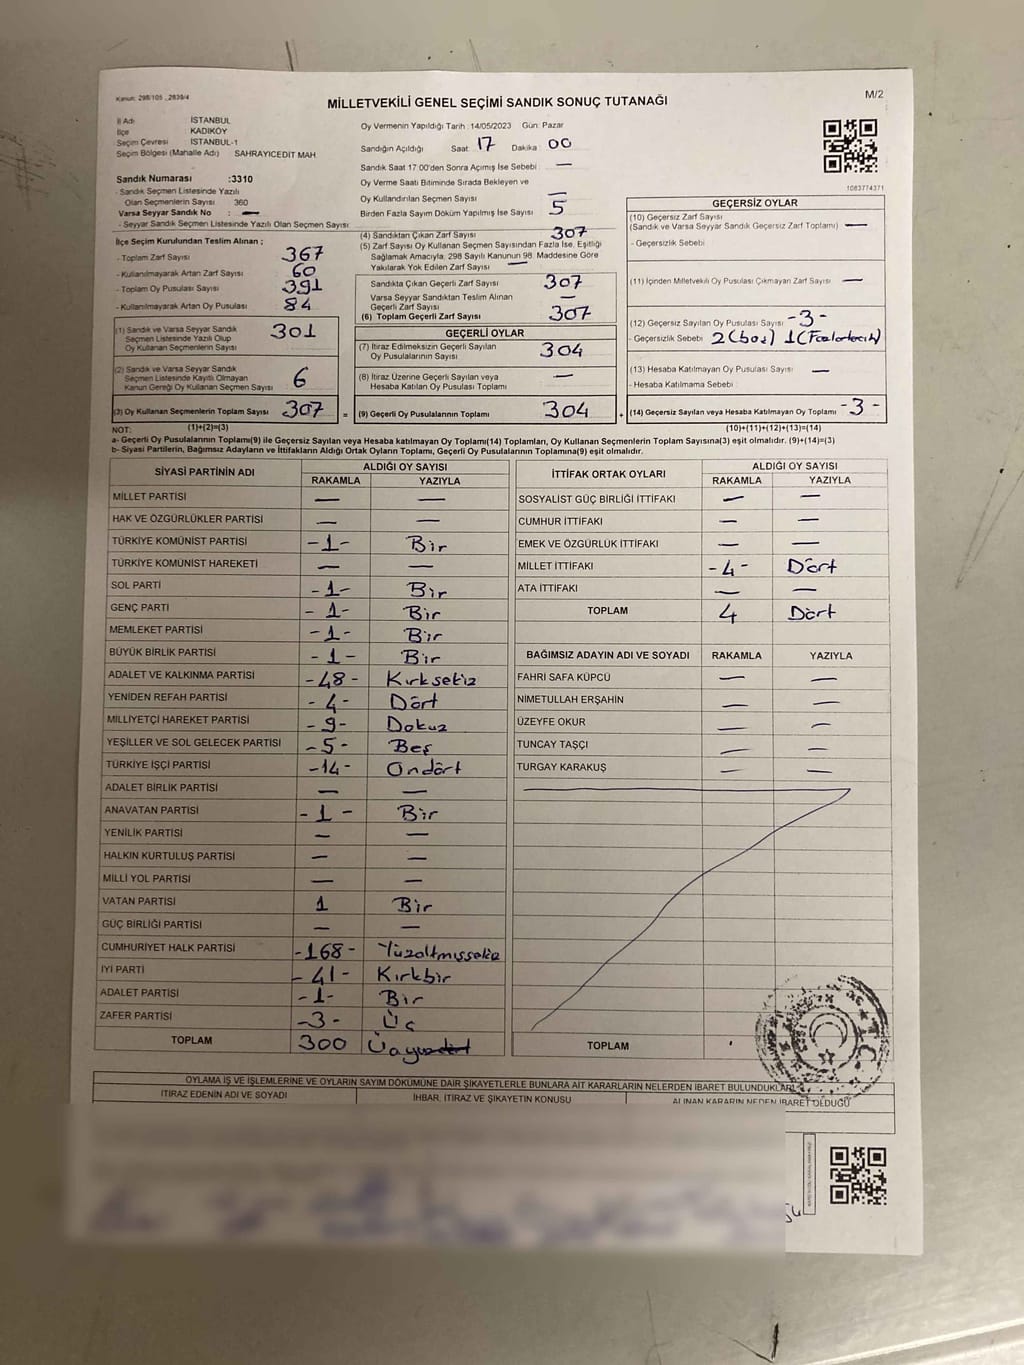 Kanun: 298/105 , 2839/4
MİLLETVEKİLİ GENEL SEÇİMİ SANDIK SONUÇ TUTANAĞI
M/2
İl Adı İSTANBUL
İlçe KADIKÖY
Seçim Çevresi İSTANBUL-1
Seçim Bölgesi (Mahalle Adı) SAHRAYICEDİT MAH.
Sandık Numarası :3310
- Sandık Seçmen Listesinde Yazılı
Olan Seçmenlerin Sayısı 360
Varsa Seyyar Sandık No : —
- Seyyar Sandık Seçmen Listesinde Yazılı Olan Seçmen Sayısı:
Oy Vermenin Yapıldığı Tarih :14/05/2023 Gün: Pazar
Sandığın Açıldığı Saat: 17 Dakika: 00
Sandık Saat 17:00'den Sonra Açımış İse Sebebi : —
Oy Verme Saati Bitiminde Sırada Bekleyen ve
Oy Kullandırılan Seçmen Sayısı —
Birden Fazla Sayım Döküm Yapılmış İse Sayısı 5
1083774371
İlçe Seçim Kurulundan Teslim Alınan ;
- Toplam Zarf Sayısı 367
- Kullanılmayarak Artan Zarf Sayısı 60
- Toplam Oy Pusulası Sayısı 391
- Kullanılmayarak Artan Oy Pusulası 84
(1) Sandık ve Varsa Seyyar Sandık
Seçmen Listesinde Yazılı Olup
Oy Kullanan Seçmenlerin Sayısı 301
(2) Sandık ve Varsa Seyyar Sandık
Seçmen Listesinde Kayıtlı Olmayan
Kanun Gereği Oy Kullanan Seçmen Sayısı 6
(3) Oy Kullanan Seçmenlerin Toplam Sayısı 307 =
(4) Sandıktan Çıkan Zarf Sayısı 307
(5) Zarf Sayısı Oy Kullanan Seçmen Sayısından Fazla İse, Eşitliği
Sağlamak Amacıyla, 298 Sayılı Kanunun 98. Maddesine Göre
Yakılarak Yok Edilen Zarf Sayısı —
Sandıkta Çıkan Geçerli Zarf Sayısı 307
Varsa Seyyar Sandıktan Teslim Alınan
Geçerli Zarf Sayısı —
(6) Toplam Geçerli Zarf Sayısı 307
GEÇERLİ OYLAR
(7) İtiraz Edilmeksizin Geçerli Sayılan
Oy Pusulalarının Sayısı 304
(8) İtiraz Üzerine Geçerli Sayılan veya
Hesaba Katılan Oy Pusulası Toplamı —
(9) Geçerli Oy Pusulalarının Toplamı 304 +
GEÇERSİZ OYLAR
(10) Geçersiz Zarf Sayısı
(Sandık ve Varsa Seyyar Sandık Geçersiz Zarf Toplamı) —
- Geçersizlik Sebebi :
(11) İçinden Milletvekili Oy Pusulası Çıkmayan Zarf Sayısı —
(12) Geçersiz Sayılan Oy Pusulası Sayısı -3-
- Geçersizlik Sebebi 2(boş) 1
(13) Hesaba Katılmayan Oy Pusulası Sayısı —
- Hesaba Katılmama Sebebi :
(14) Geçersiz Sayılan veya Hesaba Katılmayan Oy Toplamı -3-
NOT: (1)+(2)=(3) (10)+(11)+(12)+(13)=(14)
a- Geçerli Oy Pusulalarının Toplamı(9) ile Geçersiz Sayılan veya Hesaba katılmayan Oy Toplamı(14) Toplamları, Oy Kullanan Seçmenlerin Toplam Sayısına(3) eşit olmalıdır. (9)+(14)=(3)
b- Siyasi Partilerin, Bağımsız Adayların ve İttifakların Aldığı Ortak Oyların Toplamı, Geçerli Oy Pusulalarının Toplamına(9) eşit olmalıdır.
SİYASİ PARTİNİN ADI ALDIĞI OY SAYISI
RAKAMLA YAZIYLA
MİLLET PARTİSİ — —
HAK VE ÖZGÜRLÜKLER PARTİSİ — —
TÜRKİYE KOMÜNİST PARTİSİ -1- Bir
TÜRKİYE KOMÜNİST HAREKETİ — —
SOL PARTİ -1- Bir
GENÇ PARTİ -1- Bir
MEMLEKET PARTİSİ -1- Bir
BÜYÜK BİRLİK PARTİSİ -1- Bir
ADALET VE KALKINMA PARTİSİ -48- Kırksekiz
YENİDEN REFAH PARTİSİ -4- Dört
MİLLİYETÇİ HAREKET PARTİSİ -9- Dokuz
YEŞİLLER VE SOL GELECEK PARTİSİ -5- Beş
TÜRKİYE İŞÇİ PARTİSİ -14- Ondört
ADALET BİRLİK PARTİSİ — —
ANAVATAN PARTİSİ -1- Bir
YENİLİK PARTİSİ — —
HALKIN KURTULUŞ PARTİSİ — —
MİLLİ YOL PARTİSİ — —
VATAN PARTİSİ 1 Bir
GÜÇ BİRLİĞİ PARTİSİ — —
CUMHURİYET HALK PARTİSİ -168- Yüzaltmışsekiz
İYİ PARTİ -41- Kırkbir
ADALET PARTİSİ -1- Bir
ZAFER PARTİSİ -3- Üç
TOPLAM 300
İTTİFAK ORTAK OYLARI ALDIĞI OY SAYISI
RAKAMLA YAZIYLA
SOSYALİST GÜÇ BİRLİĞİ İTTİFAKI — —
CUMHUR İTTİFAKI — —
EMEK VE ÖZGÜRLÜK İTTİFAKI — —
MİLLET İTTİFAKI -4- Dört
ATA İTTİFAKI — —
TOPLAM 4 Dört
BAĞIMSIZ ADAYIN ADI VE SOYADI RAKAMLA YAZIYLA
FAHRİ SAFA KÜPCÜ — —
NİMETULLAH ERŞAHİN — —
ÜZEYFE OKUR — —
TUNCAY TAŞÇI — —
TURGAY KARAKUŞ — —
TOPLAM
OYLAMA İŞ VE İŞLEMLERİNE VE OYLARIN SAYIM DÖKÜMÜNE DAİR ŞİKAYETLERLE BUNLARA AİT KARARLARIN NELERDEN İBARET BULUNDUKLARI
İTİRAZ EDENİN ADI VE SOYADI İHBAR, İTİRAZ VE ŞİKAYETİN KONUSU ALINAN KARARIN NEDEN İBARET OLDUĞU